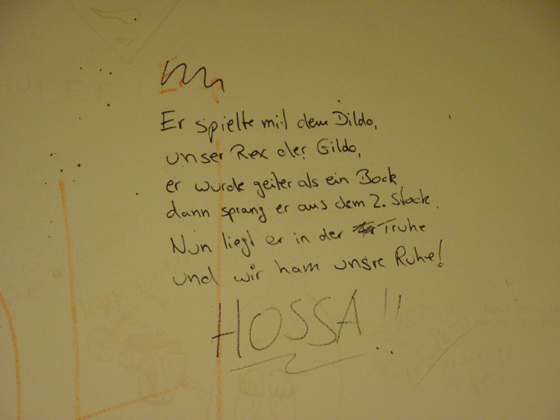 Er spielte mit dem Dildo,
unser Rex der Gildo,
er wurde geiter als ein Bock
dann sprang er aus dem 2. Stock.
Nun liegt er in der Truhe
und wir ham unsre Ruhe!
HOSSA!!